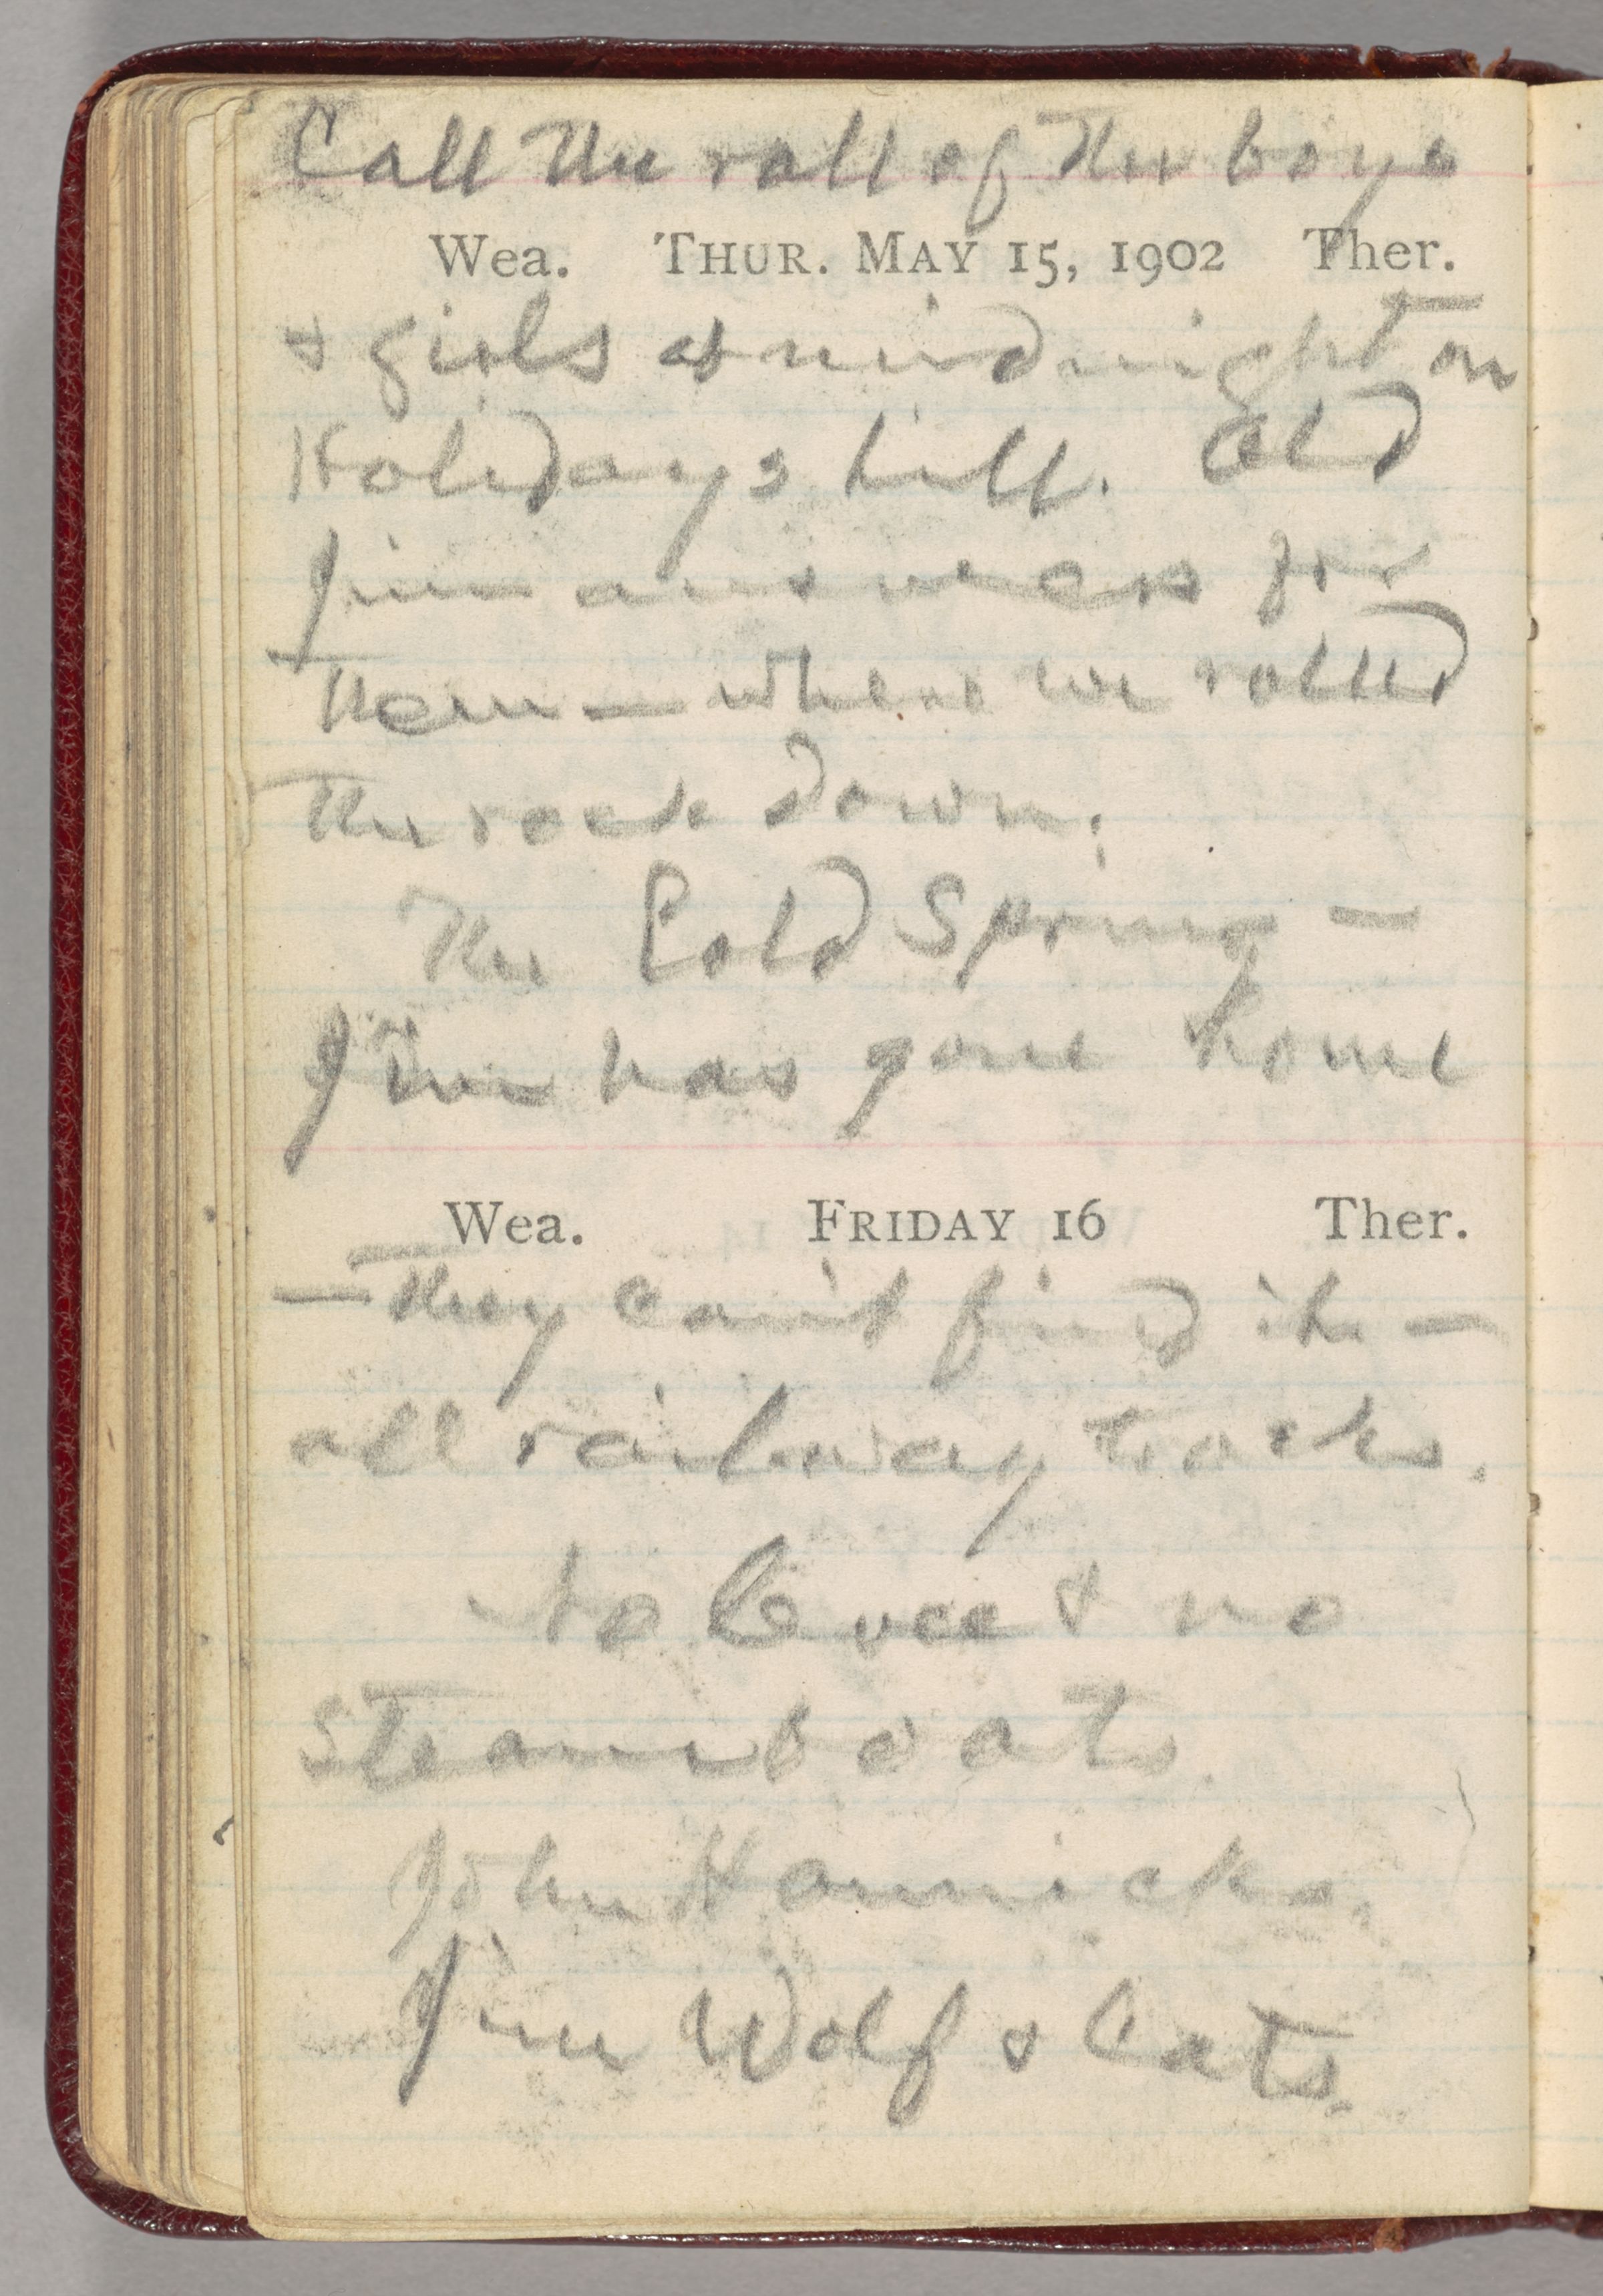 Call the roll of the boys
Wea. THUR. MAY 15, 1902 Ther.
& girls at midnight on
Holiday's hill. Old
Jim answers for
them — where we rolled
the rock down.
The Cold Spring —
Jim has gone home
Wea. FRIDAY 16 Ther.
— they can't find it —
all railway tracks.
to levee & no
steamboats.
John Hannicks.
Jim Wolf & Cats.